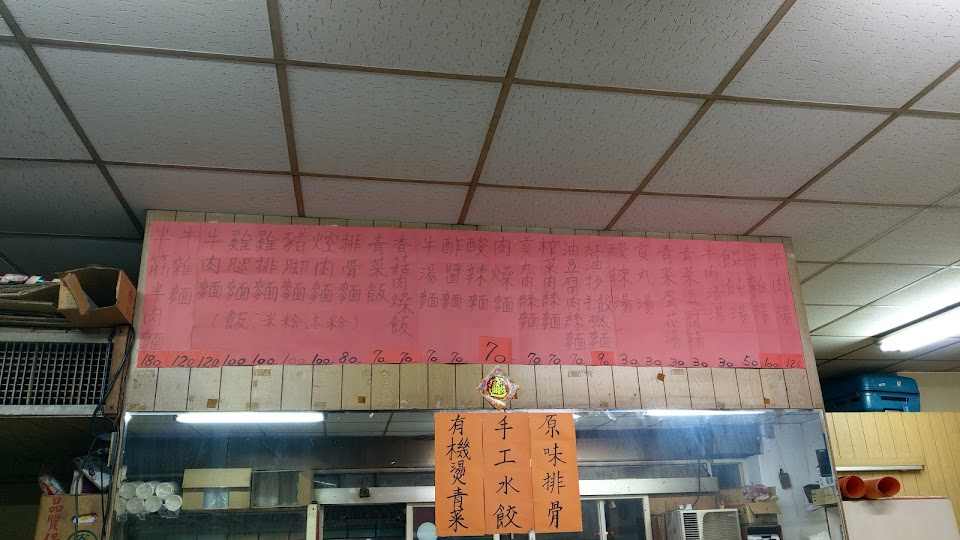 牛筋半肉麵 180
牛雜麵 120
牛肉麵 120
雞腿麵 100
雞排麵 100
豬脚麵 100
焢肉麵 100
排骨麵 80
(飯、米粉、冬粉)
青菜飯 70
香菇肉燥飯 70
牛湯麵 70
酢醬麵 70
酸辣麵 70
肉燥麵 70
貢丸肉絲麵 70
榨菜肉絲麵 70
油豆腐肉絲麵 70
紅油抄手乾麵 90
酸辣湯 30
貢丸湯 30
青菜蛋花湯 30
青菜豆腐湯 30
牛清湯 30
餛飩湯 50
牛雜湯 100
牛肉湯 120
有機燙青菜
手工水餃
原味排骨
品質保